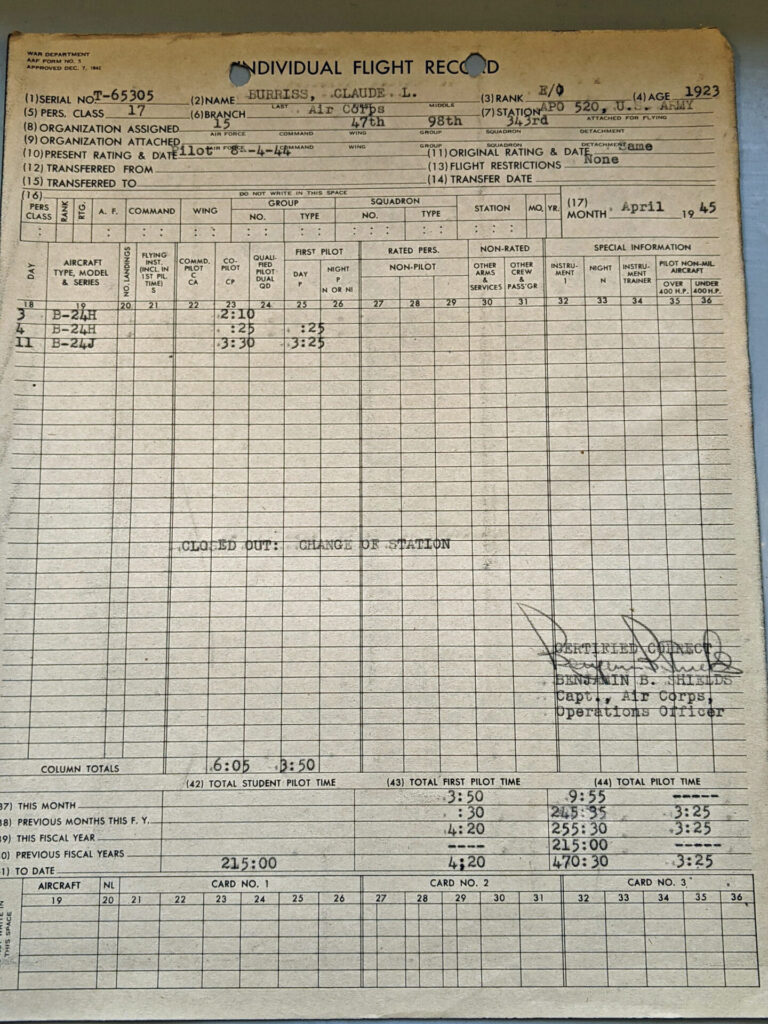 WAR DEPARTMENT
AAF FORM NO. 5
APPROVED DEC. 7, 1942
INDIVIDUAL FLIGHT RECORD
(1) SERIAL NO. T-65305 (2) NAME BURRISS, CLAUDE L. (3) RANK F/O (4) AGE 1923
LAST MIDDLE
(5) PERS. CLASS 17 (6) BRANCH Air Corps (7) STATION APO 520, U.S. ARMY
(8) ORGANIZATION ASSIGNED 15 47th 98th 343rd ATTACHED FOR FLYING
AIR FORCE COMMAND WING GROUP SQUADRON DETACHMENT
(9) ORGANIZATION ATTACHED
AIR FORCE COMMAND WING GROUP SQUADRON DETACHMENT
(10) PRESENT RATING & DATE Pilot 8--4-44 (11) ORIGINAL RATING & DATE Same
(12) TRANSFERRED FROM (13) FLIGHT RESTRICTIONS None
(15) TRANSFERRED TO (14) TRANSFER DATE
(16) DO NOT WRITE IN THIS SPACE
PERS CLASS RANK RTG. A. F. COMMAND WING GROUP NO. TYPE SQUADRON NO. TYPE STATION MO. YR. (17) MONTH April 19 45
DAY AIRCRAFT TYPE, MODEL & SERIES NO. LANDINGS FLYING INST. (INCL. IN 1ST PIL. TIME) S COMMD. PILOT C CA CO-PILOT CP QUALIFIED PILOT DUAL QD FIRST PILOT DAY P NIGHT P N OR NI RATED PERS. NON-PILOT NON-RATED OTHER ARMS & SERVICES OTHER CREW & PASS'GR SPECIAL INFORMATION INSTRUMENT I NIGHT N INSTRUMENT TRAINER PILOT NON-MIL. AIRCRAFT OVER 400 H.P. UNDER 400 H.P.
18 19 20 21 22 23 24 25 26 27 28 29 30 31 32 33 34 35 36
3 B-24H 2:10
4 B-24H :25 :25
11 B-24J 3:30 3:25
CLOSED OUT: CHANGE OF STATION
CERTIFIED CORRECT
BENJAMIN B. SHIELDS
Capt., Air Corps,
Operations Officer
COLUMN TOTALS 6:05 3:50
(42) TOTAL STUDENT PILOT TIME (43) TOTAL FIRST PILOT TIME (44) TOTAL PILOT TIME
37) THIS MONTH 3:50 9:55 -----
38) PREVIOUS MONTHS THIS F. Y. :30 245:35 3:25
39) THIS FISCAL YEAR 4:20 255:30 3:25
40) PREVIOUS FISCAL YEARS ---- 215:00
41) TO DATE 215:00 4:20 470:30 3:25
AIRCRAFT NL CARD NO. 1 CARD NO. 2 CARD NO. 3
19 20 21 22 23 24 25 26 27 28 29 30 31 32 33 34 35 36
WRITE IN
THIS SPACE